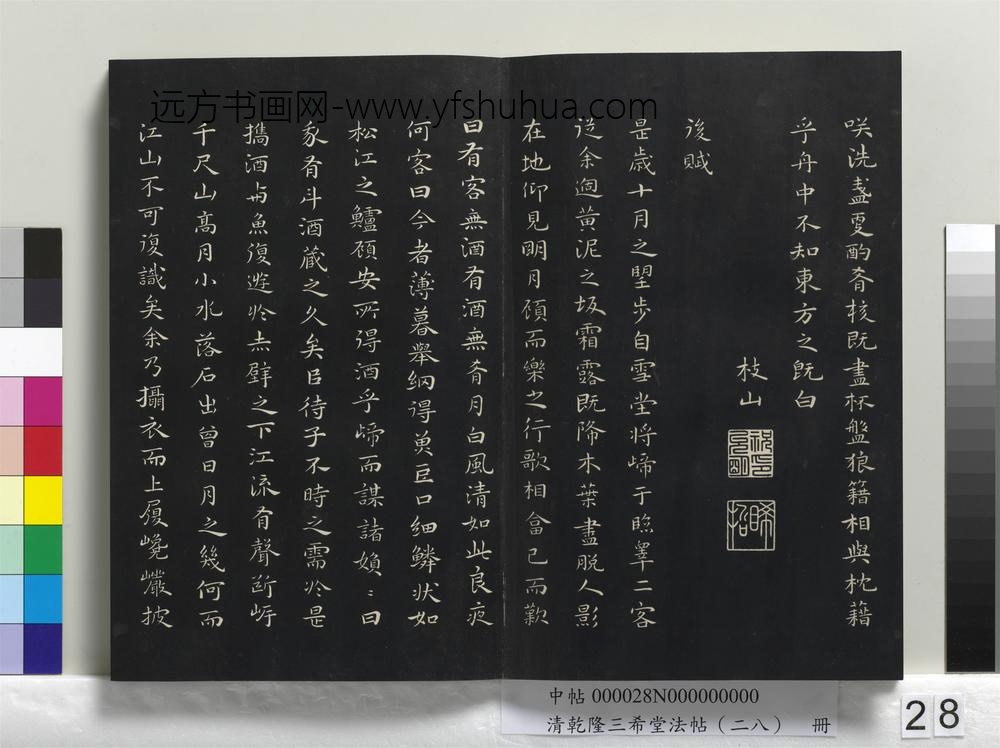 远方书画网-www.yfshuhua.com
咲洗盞更酌肴核既盡杯盤狼籍相與枕藉
乎舟中不知東方之既白
枝山
後賦
是歲十月之望步自雪堂將歸于臨皋二客
從余過黃泥之坂霜露既降木葉盡脫人影
在地仰見明月顧而樂之行歌相答已而歎
曰有客無酒有酒無肴月白風清如此良夜
何客曰今者薄暮舉網得魚巨口細鱗狀如
松江之鱸顧安所得酒乎歸而謀諸婦〻曰
我有斗酒藏之久矣以待子不時之需於是
攜酒與魚復遊於赤壁之下江流有聲斷岸
千尺山高月小水落石出曾日月之幾何而
江山不可復識矣余乃攝衣而上履巉巖披
中帖 000028N000000000
清乾隆三希堂法帖（二八） 冊
28